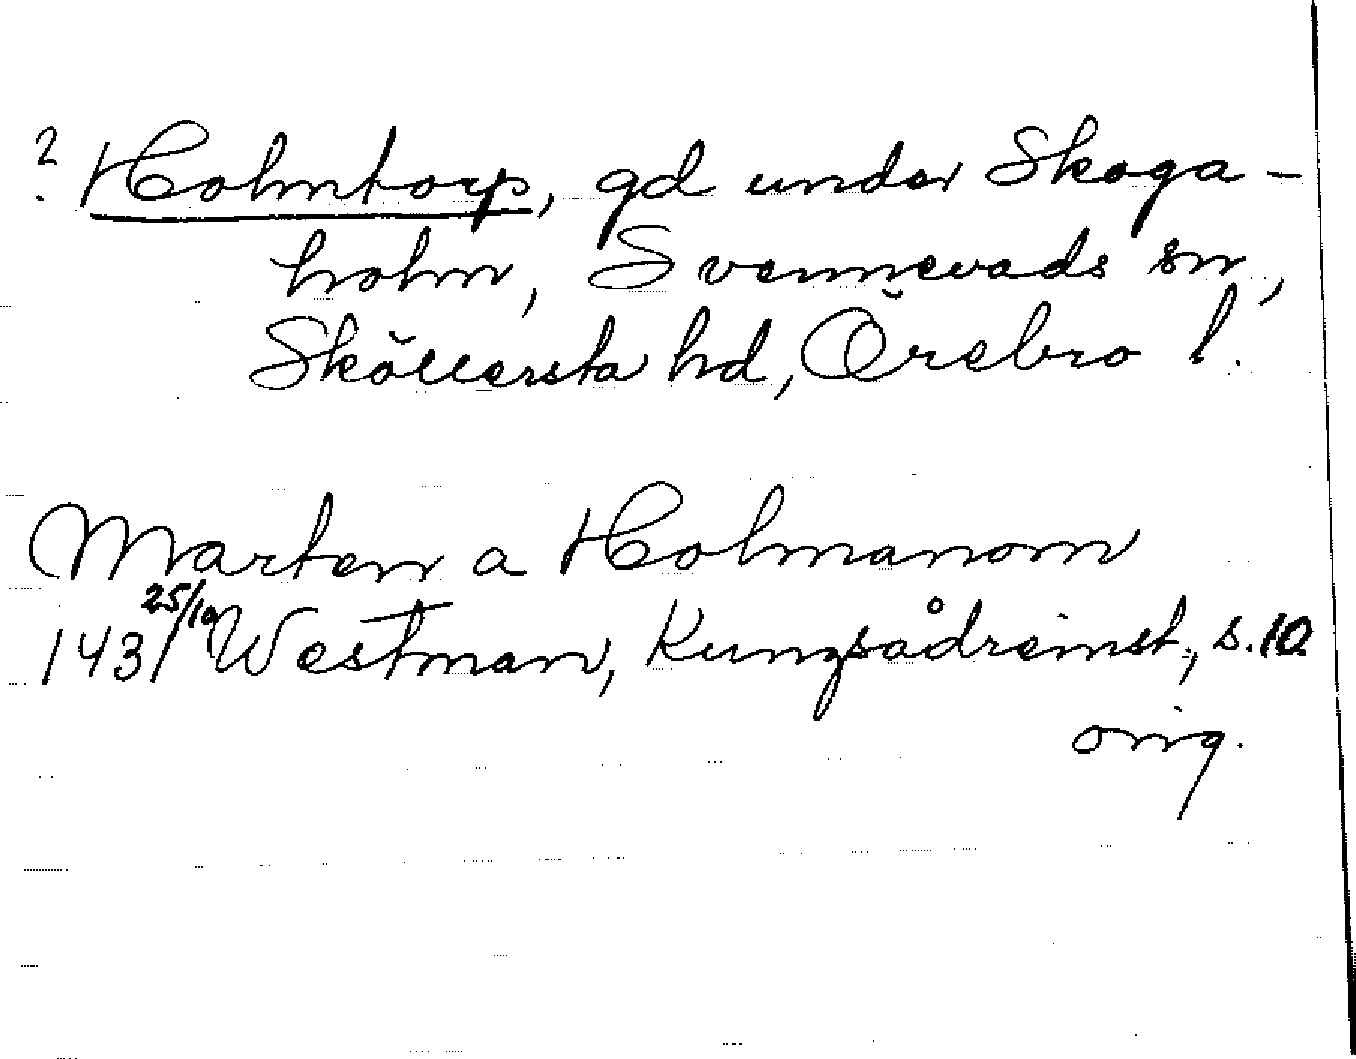 ? Holmtorp, gd under Skoga-
holm, Svennevads sn,
Sköllersta hd, Örebro l.
Marten a Holmanom
1431 25/10 Westman, Kungsådreinst., s. 10.
orig.